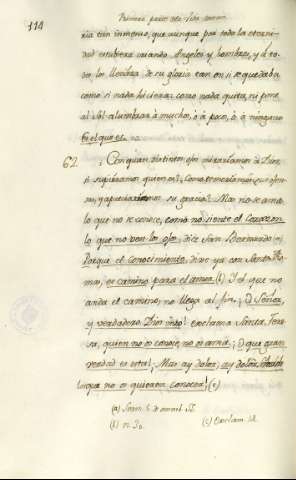 114
Primera parte de la Vida
ria tan inmenso, que aunque por toda la eterni-
dad estubiera criando Angeles y hombres, y á to-
dos los llenàra de su gloria tan en si se quedaba
como si nada hiciera: como nada quita, ni pone
al Sol alumbrar à mucho, ò à poco, ò à ninguno
Es el que es.
62 ¡Con quan distintos ojos miraríamos à Dios,
si supiéramos quien es! ¡Como temeríamos sus ofen-
sas, y apreciaríamos su gracia! Mas no se ama
lo que no se conoce, como no siente el Corazon
lo que no ven los ojos, dice San Bernardo (a)
Porque el conocimiento, dice ya con Santo Tho-
mas, es camino para el amor. (b) Y el que no
anda el camino, no llega al fin. ¡O Señor,
y verdadero Dios mio! exclama Santa Tere-
sa, quien no os conoce, no os ama. ¡O que gran
verdad es esta! Mas ay dolor, ay dolor, Señor
que no os quieran conocer! (c)
(a) Serm. 5. de omnib. SS.
(b) n. 30. (c) Exclam. 14.